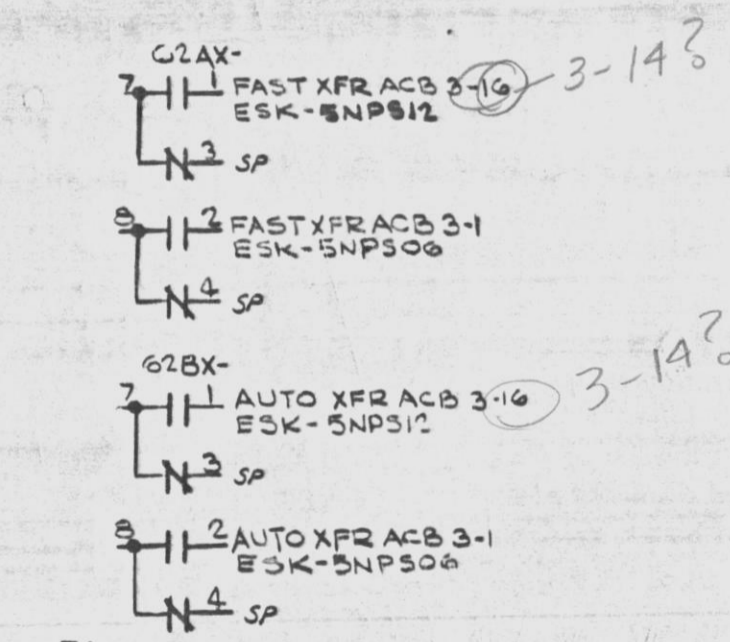 62AX-
7 1 FAST XFR ACB 3-16 3-14?
ESK-5NPS12
3 SP
8 2 FAST XFR ACB 3-1
ESK-5NPS06
4 SP
62BX-
7 1 AUTO XFR ACB 3-16 3-14?
ESK-5NPS12
3 SP
8 2 AUTO XFR ACB 3-1
ESK-5NPS06
4 SP